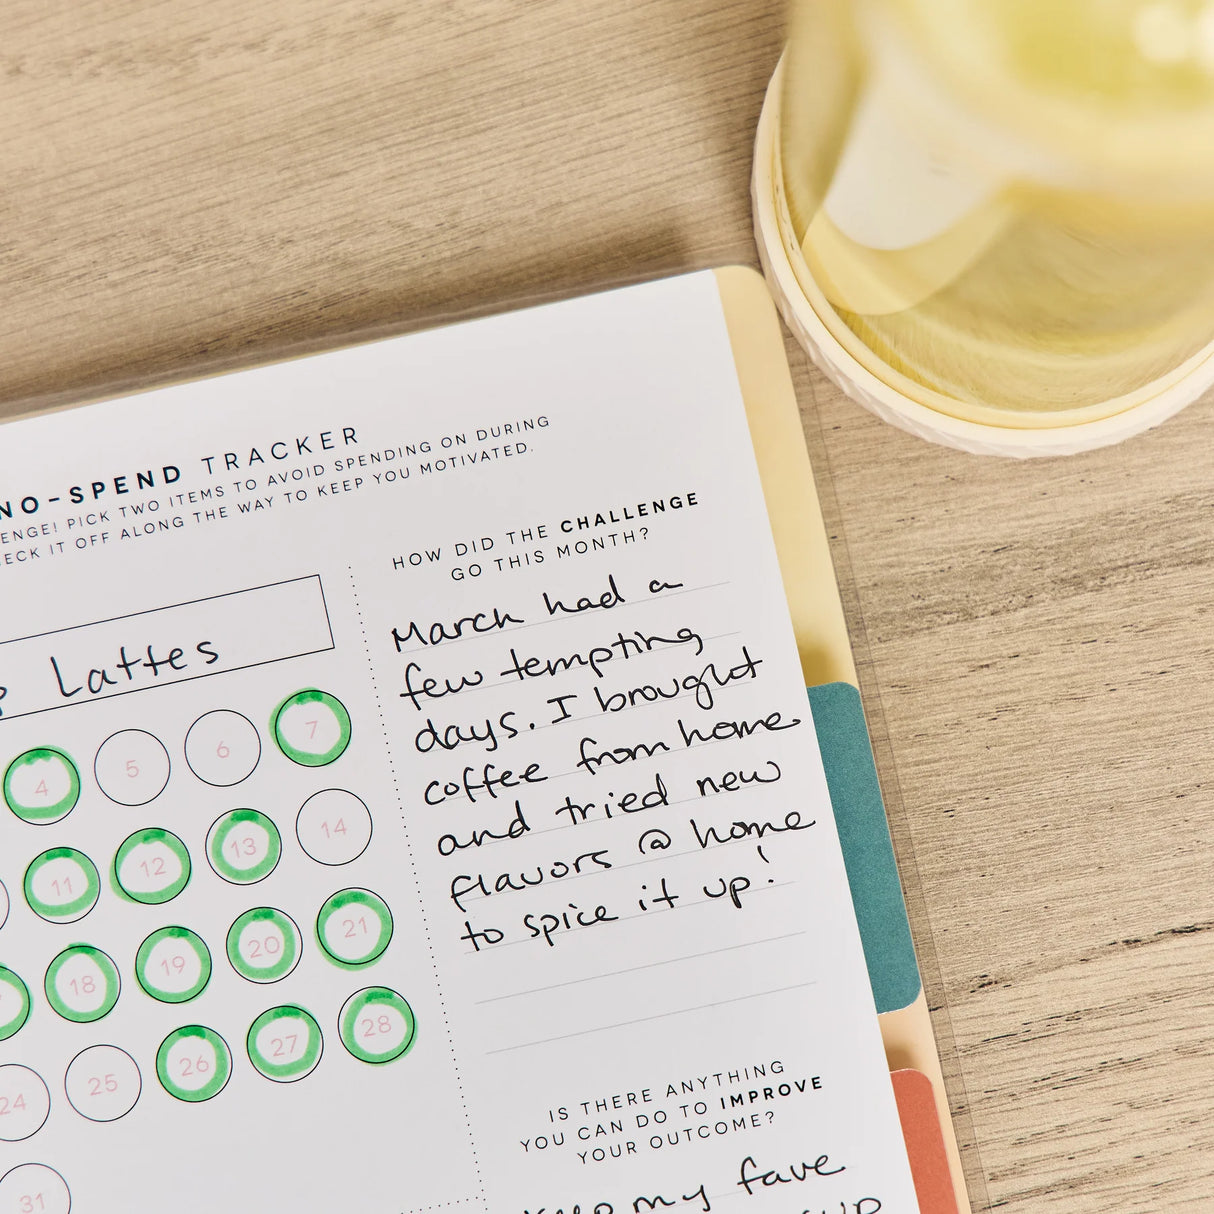 NO-SPEND TRACKER
ENGE! PICK TWO ITEMS TO AVOID SPENDING ON DURING
ECK IT OFF ALONG THE WAY TO KEEP YOU MOTIVATED.
Lattes
4 5 6 7
11 12 13 14
18 19 20 21
24 25 26 27 28
31
HOW DID THE CHALLENGE
GO THIS MONTH?
March had a
few tempting
days. I brought
coffee from home
and tried new
flavors @ home
to spice it up!
IS THERE ANYTHING
YOU CAN DO TO IMPROVE
YOUR OUTCOME?
my fave